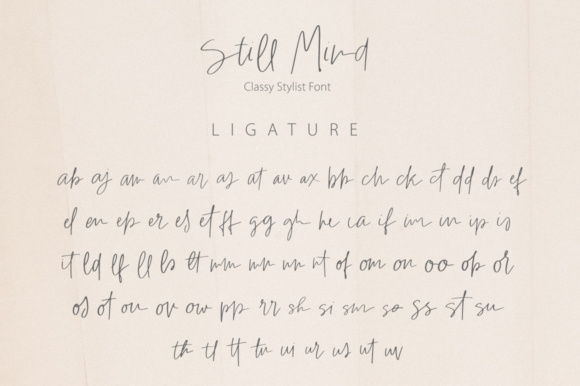 Still Mind
Classy Stylist Font
LIGATURE
ab as am an ar as at av ax bb ch ck ct dd ds ef
el en ep er es et ff gg gh he ia if im in ip is
it ld lf ll ls lt mm mn nn nt of om on oo op or
os ot ou ov ow pp rr sh si sm so ss st su
th tl tt tu ui ur us ut uv